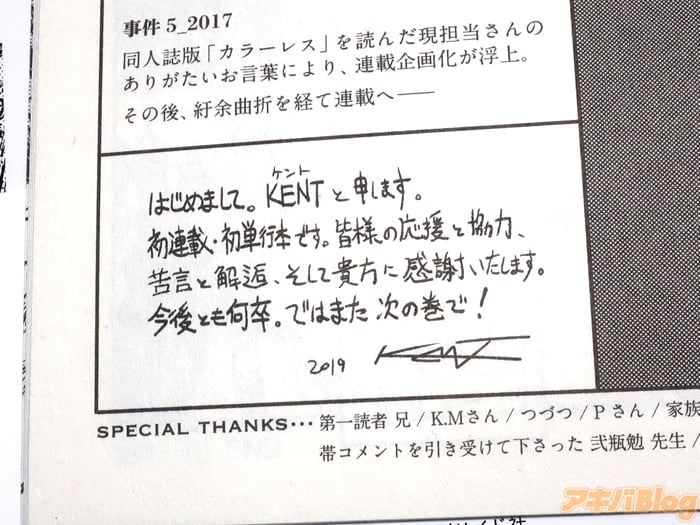 事件 5_2017
同人誌版「カラーレス」を読んだ現担当さんの
ありがたいお言葉により、連載企画化が浮上。
その後、紆余曲折を経て連載へ――
ケント
はじめまして。KENTと申します。
初連載・初単行本です。皆様の応援と協力、
苦言と解逅、そして貴方に感謝いたします。
今後とも何卒。ではまた次の巻で!
2019 KENT
SPECIAL THANKS… 第一読者 兄 / K.Mさん / つづつ / Pさん / 家族
帯コメントを引き受けて下さった 弐瓶勉 先生 /
アキバBlog